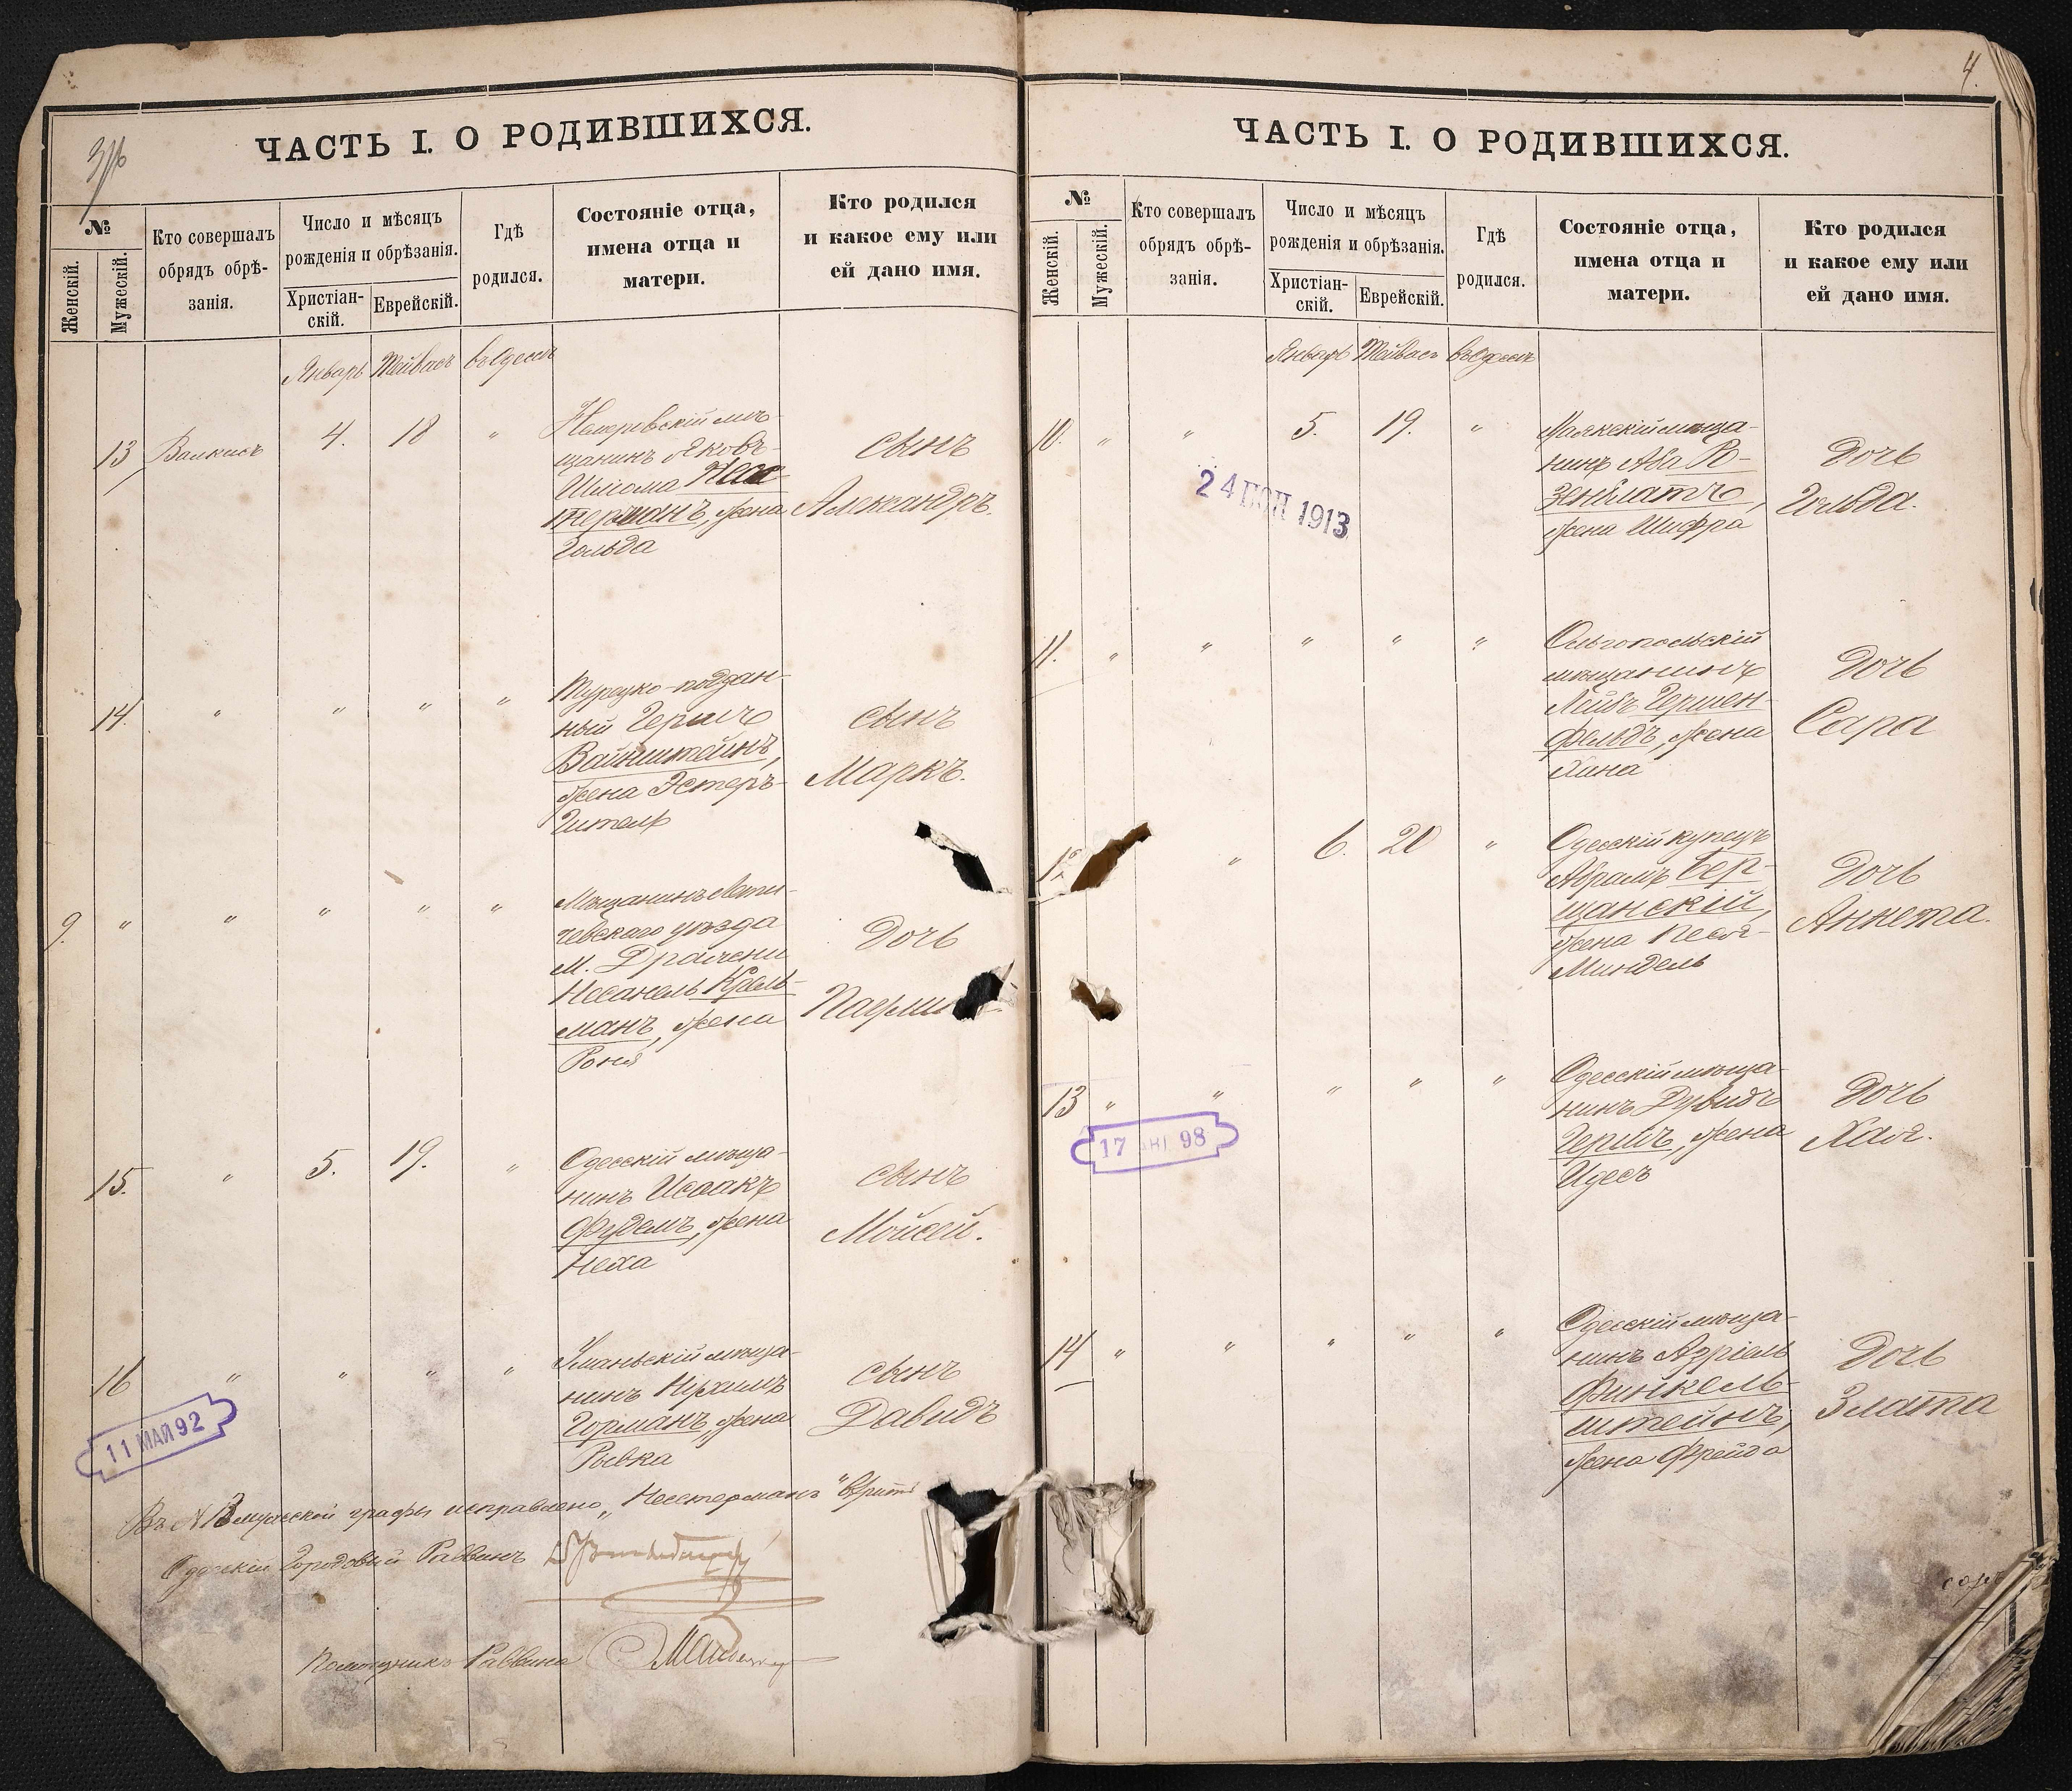 3
ЧАСТЬ I. О РОДИВШИХСЯ.
№
Женскій.
Мужескій.
Кто совершалъ
обрядъ обрѣ-
занія.
Число и мѣсяцъ
рожденія и обрѣзанія.
Христіан-
скій.
Еврейскій.
Гдѣ
родился.
Состояніе отца,
имена отца и
матери.
Кто родился
и какое ему или
ей дано имя.
Январь Тейвасъ въ Одессѣ
13 Валкисъ 4. 18 "
Немировскій мѣ-
щанинъ Яковъ-
Шлиома Нес-
терманъ, жена
Гольда
сынъ
Александръ.
14. " " " "
Турецко-поддан-
ный Гершъ
Вайнштейнъ,
жена Эстеръ-
Гитель
сынъ
Маркъ.
9. " " " " "
Мѣщанинъ Лети-
чевскаго уѣзда
м. Дражени
Несанель Крель-
манъ, жена
Роня
Дочь
15. " 5. 19. "
Одесскій мѣща-
нинъ Исаакъ
Фудемъ, жена
Неха
сынъ
Мойсей.
16 " " " "
Уманьскій мѣща-
нинъ
Горманъ, жена
Рывка
сынъ
Давидъ
11 МАЯ 92
Въ № 13 мужеской графы исправлено „Нестерманъ" вѣрить
Одесскій Городовый Раввинъ
Помощникъ Раввина
4.
ЧАСТЬ I. О РОДИВШИХСЯ.
№
Женскій.
Мужескій.
Кто совершалъ
обрядъ обрѣ-
занія.
Число и мѣсяцъ
рожденія и обрѣзанія.
Христіан-
скій.
Еврейскій.
Гдѣ
родился.
Состояніе отца,
имена отца и
матери.
Кто родился
и какое ему или
ей дано имя.
Январь Тейвасъ въ Одессѣ
10. " " 5. 19. "
Маякскій мѣща-
нинъ Аба Ро-
зенблатъ,
жена Шифра
Дочь
Гольда.
1913
11. " " " " "
Ольгопольскій
мѣщанинъ
Лейбъ Гершен-
фельдъ, жена
Хана
Дочь
Сара
12 " 6. 20 "
Одесскій купецъ
Абрамъ Бер-
щанскій,
жена Песя-
Миндель
Дочь
Аннета.
13 " " " " "
Одесскій мѣща-
нинъ Дувидъ
Гершъ, жена
Идесъ
Дочь
Хая.
17 98
14 " " " " "
Одесскій мѣща-
нинъ Азріель
Финкель-
штейнъ,
жена Фрейда
Дочь
Злата